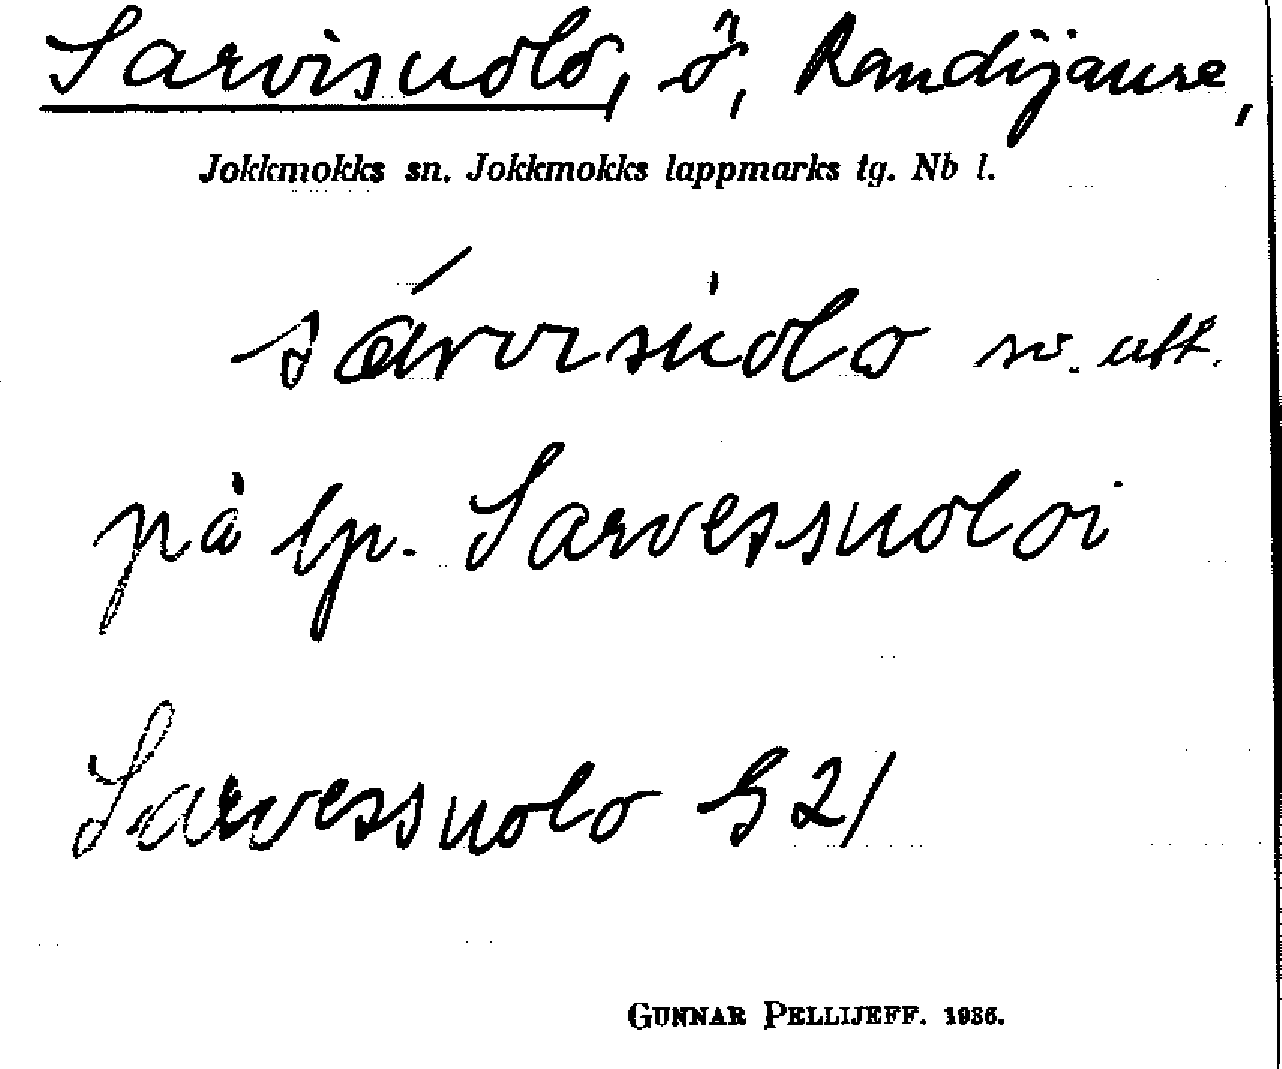 Sarvisuolo, ö, Randijaure,
Jokkmokks sn. Jokkmokks lappmarks tg. Nb l.
sárvisuolo sv. utt.
på lp. Sarvessuoloi
Sarvessuolo G 21
GUNNAR PELLIJEFF. 1936.